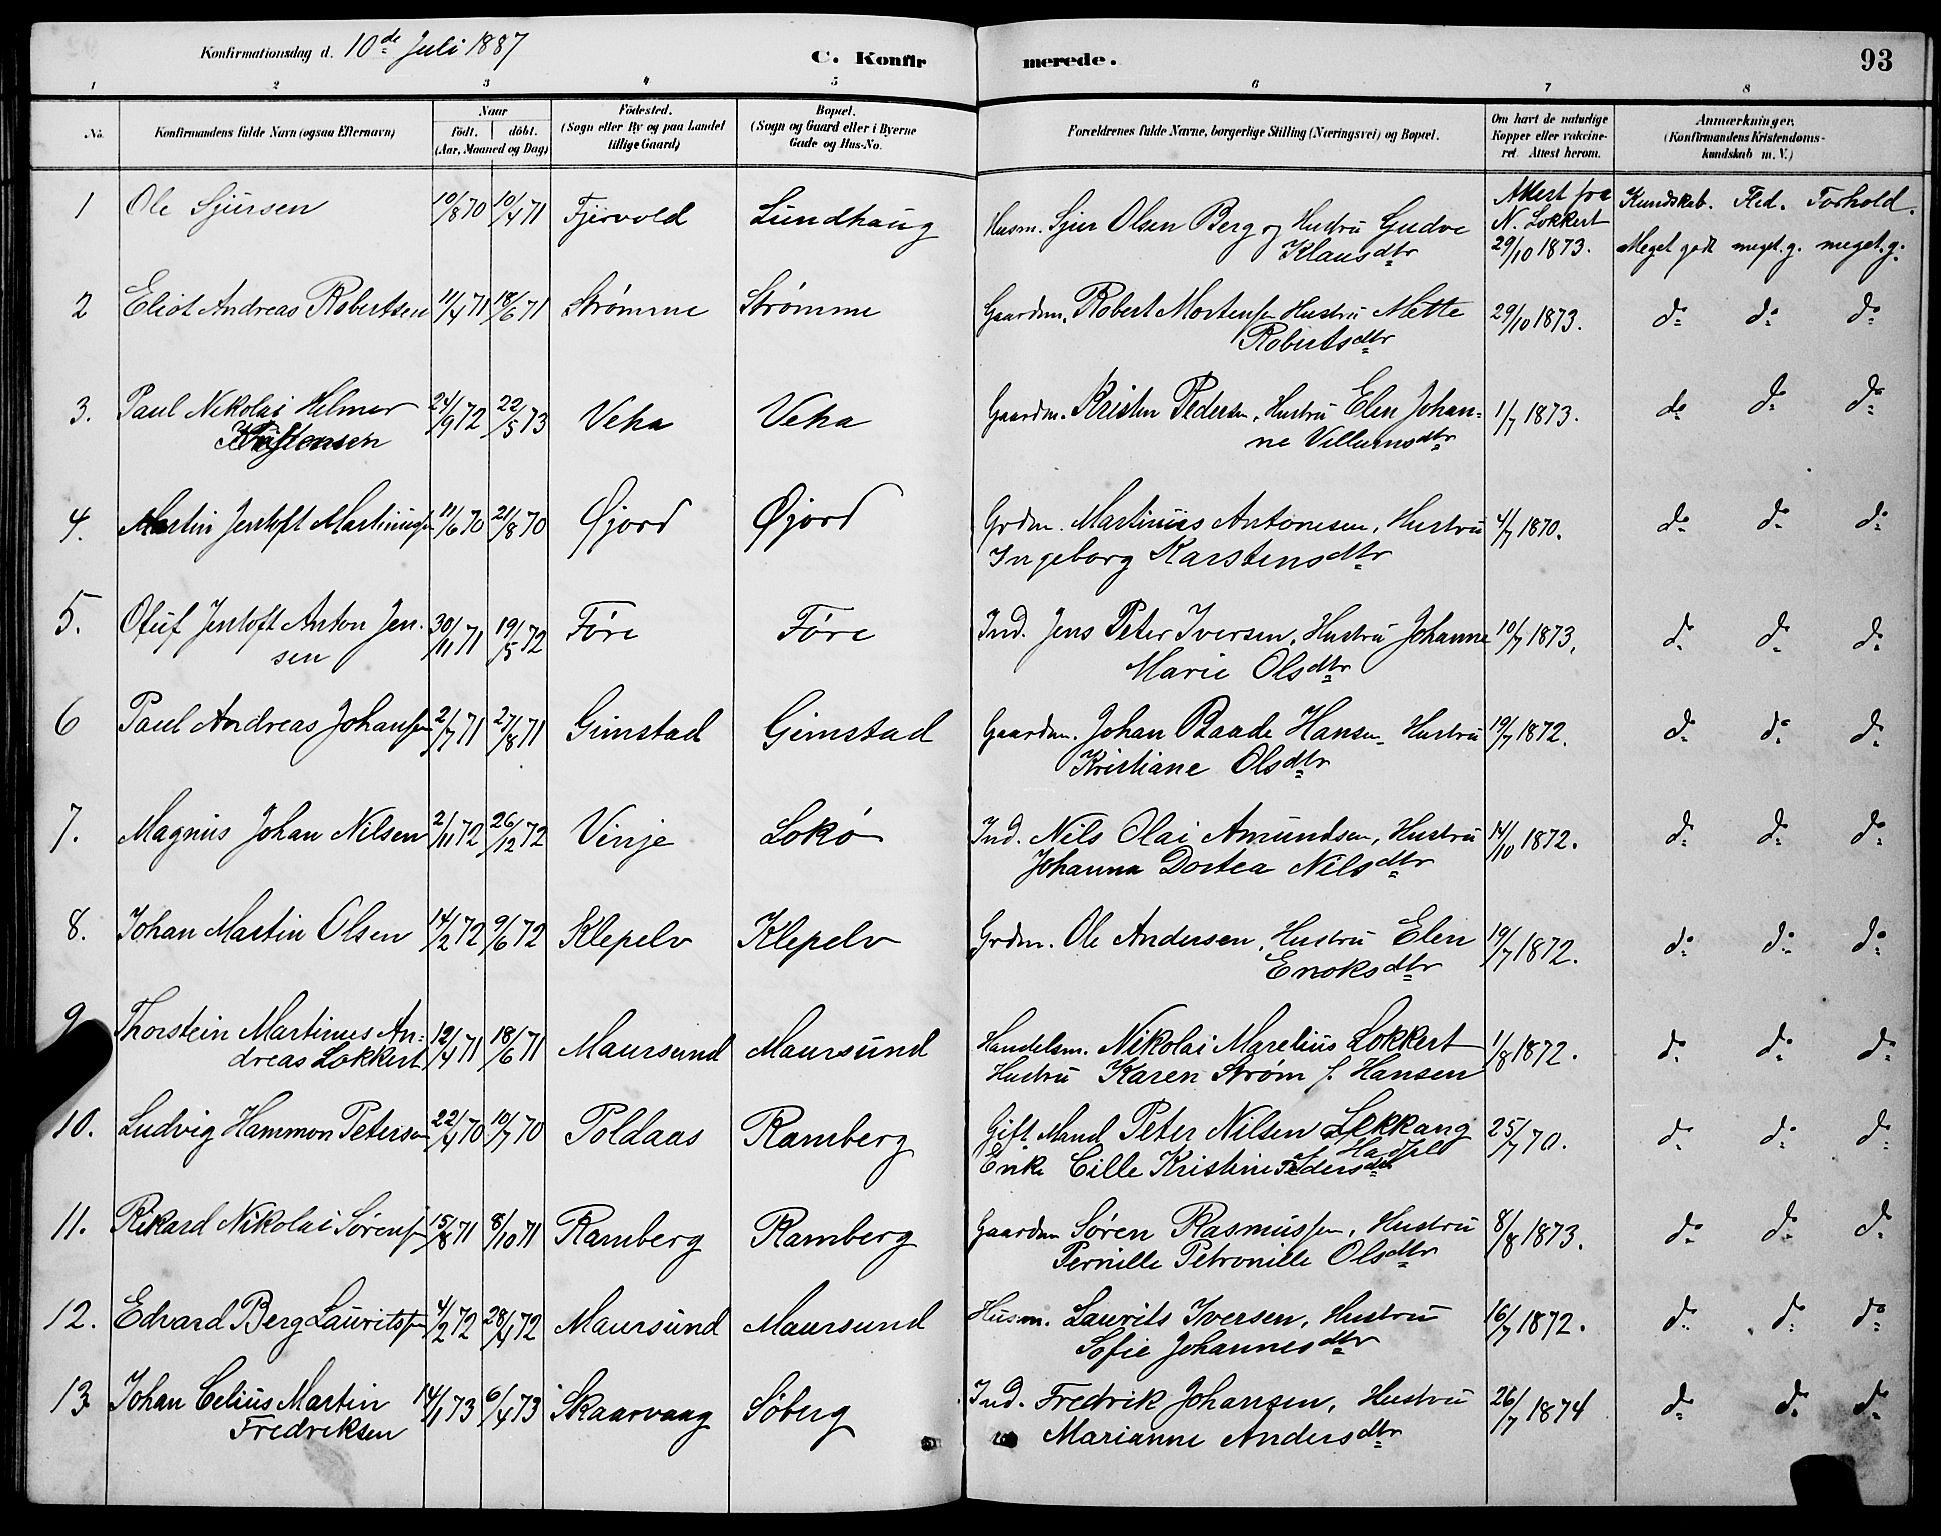 Konfirmationsdag d. 10de Juli 1887 C. Konfir merede. 93
1 2 3 4 5 6 7 8
No. Konfirmandens fulde Navn (ogsaa Efternavn) Naar födt. döbt. (Aar, Maaned og Dag) Födested. (Sogn eller By og paa Landet tillige Gaard) Bopæl. (Sogn og Gaard eller i Byerne Gade og Hus-No. Forældrenes fulde Navne, borgerlige Stilling (Næringsvei) og Bopæl. Om havt de naturlige Kopper eller vakcineret. Attest herom. Anmærkninger. (Konfirmandens Kristendomskundskab m. V.)
Attest fra Kundskab. Flid. Forhold.
1 Ole Sjursen 10/8 70 10/4 71 Fjervold Lundhaug Husm. Sjur Olsen Berg og Hustru Gudve N. Lokkert
Klausdtr 29/10 1873. Meget godt meget.g. meget.g.
2 Eliot Andreas Robertsen 11/4 71 18/6 71 Strømme Strømme Gaardm. Robert Mortensen Hustru Mette 29/10 1873. do do do
Robertsdtr
3. Paul Nikolai Helmer 24/9 72 22/5 73 Veha Veha Gaardm. Kristen Pedersen, Hustru Elen Johan- 1/7 1873. do do do
Kristensen ne Villumsdtr
4. Martin Jentoft Martinusen 11/6 70 21/8 70 Øjord Øjord Grdm. Martinus Antonesen, Hustru 4/7 1870. do do do
Ingeborg Karstensdtr
5. Oluf Jentoft Anton Jen- 30/11 71 19/5 72 Føre Føre Ind. Jens Peter Iversen, Hustru Johanne 10/7 1873, do do do
sen Marie Olsdtr
6 Paul Andreas Johansen 2/7 71 27/8 71 Gimstad Gimstad Gaardm. Johan Baade Hansen Hustru 19/7 1872. do do do
Kristiane Olsdtr
7. Magnus Johan Nilsen 2/11 72 26/12 72 Vinje Lokø Ind. Nils Olai Amundsen, Hustru 14/10 1872. do do do
Johanna Dortea Nilsdtr
8. Johan Martin Olsen 14/2 72 9/6 72 Klepelv Klepelv Grdm. Ole Andersen, Hustru Elen 19/7 1872. do do do
Enoksdtr
9 Thorstein Martinus An- 12/4 71 18/6 71 Maursund Maursund Handelsm. Nikolai Marelius Lokkert 1/8 1872. do do do
dreas Lokkert Hustru Karen Strøm f. Hansen
10. Ludvig Hammon Petersen 22/4 70 10/7 70 Poldaas Ramberg Gift Mand Peter Nilsen Lekkang 25/7 70. do do do
Enke Cille Kristine Pedersdtr
11. Rikard Nikolai Sørensen 15/8 71 8/10 71 Ramberg Ramberg Gaardm Søren Rasmussen, Hustru 8/8 1873. do do do
Pernille Petronille Olsdtr
12. Edvard Berg Lauritsen 4/2 72 28/4 72 Maursund Maursund Husm. Laurits Iversen, Hustru 16/7 1872. do do do
Sofie Johannesdtr
13 Johan Celius Martin 14/1 73 6/4 73 Skaarvaag Søberg Ind. Fredrik Johansen, Hustru 26/7 1874 do do do
Fredriksen Marianne Andersdtr